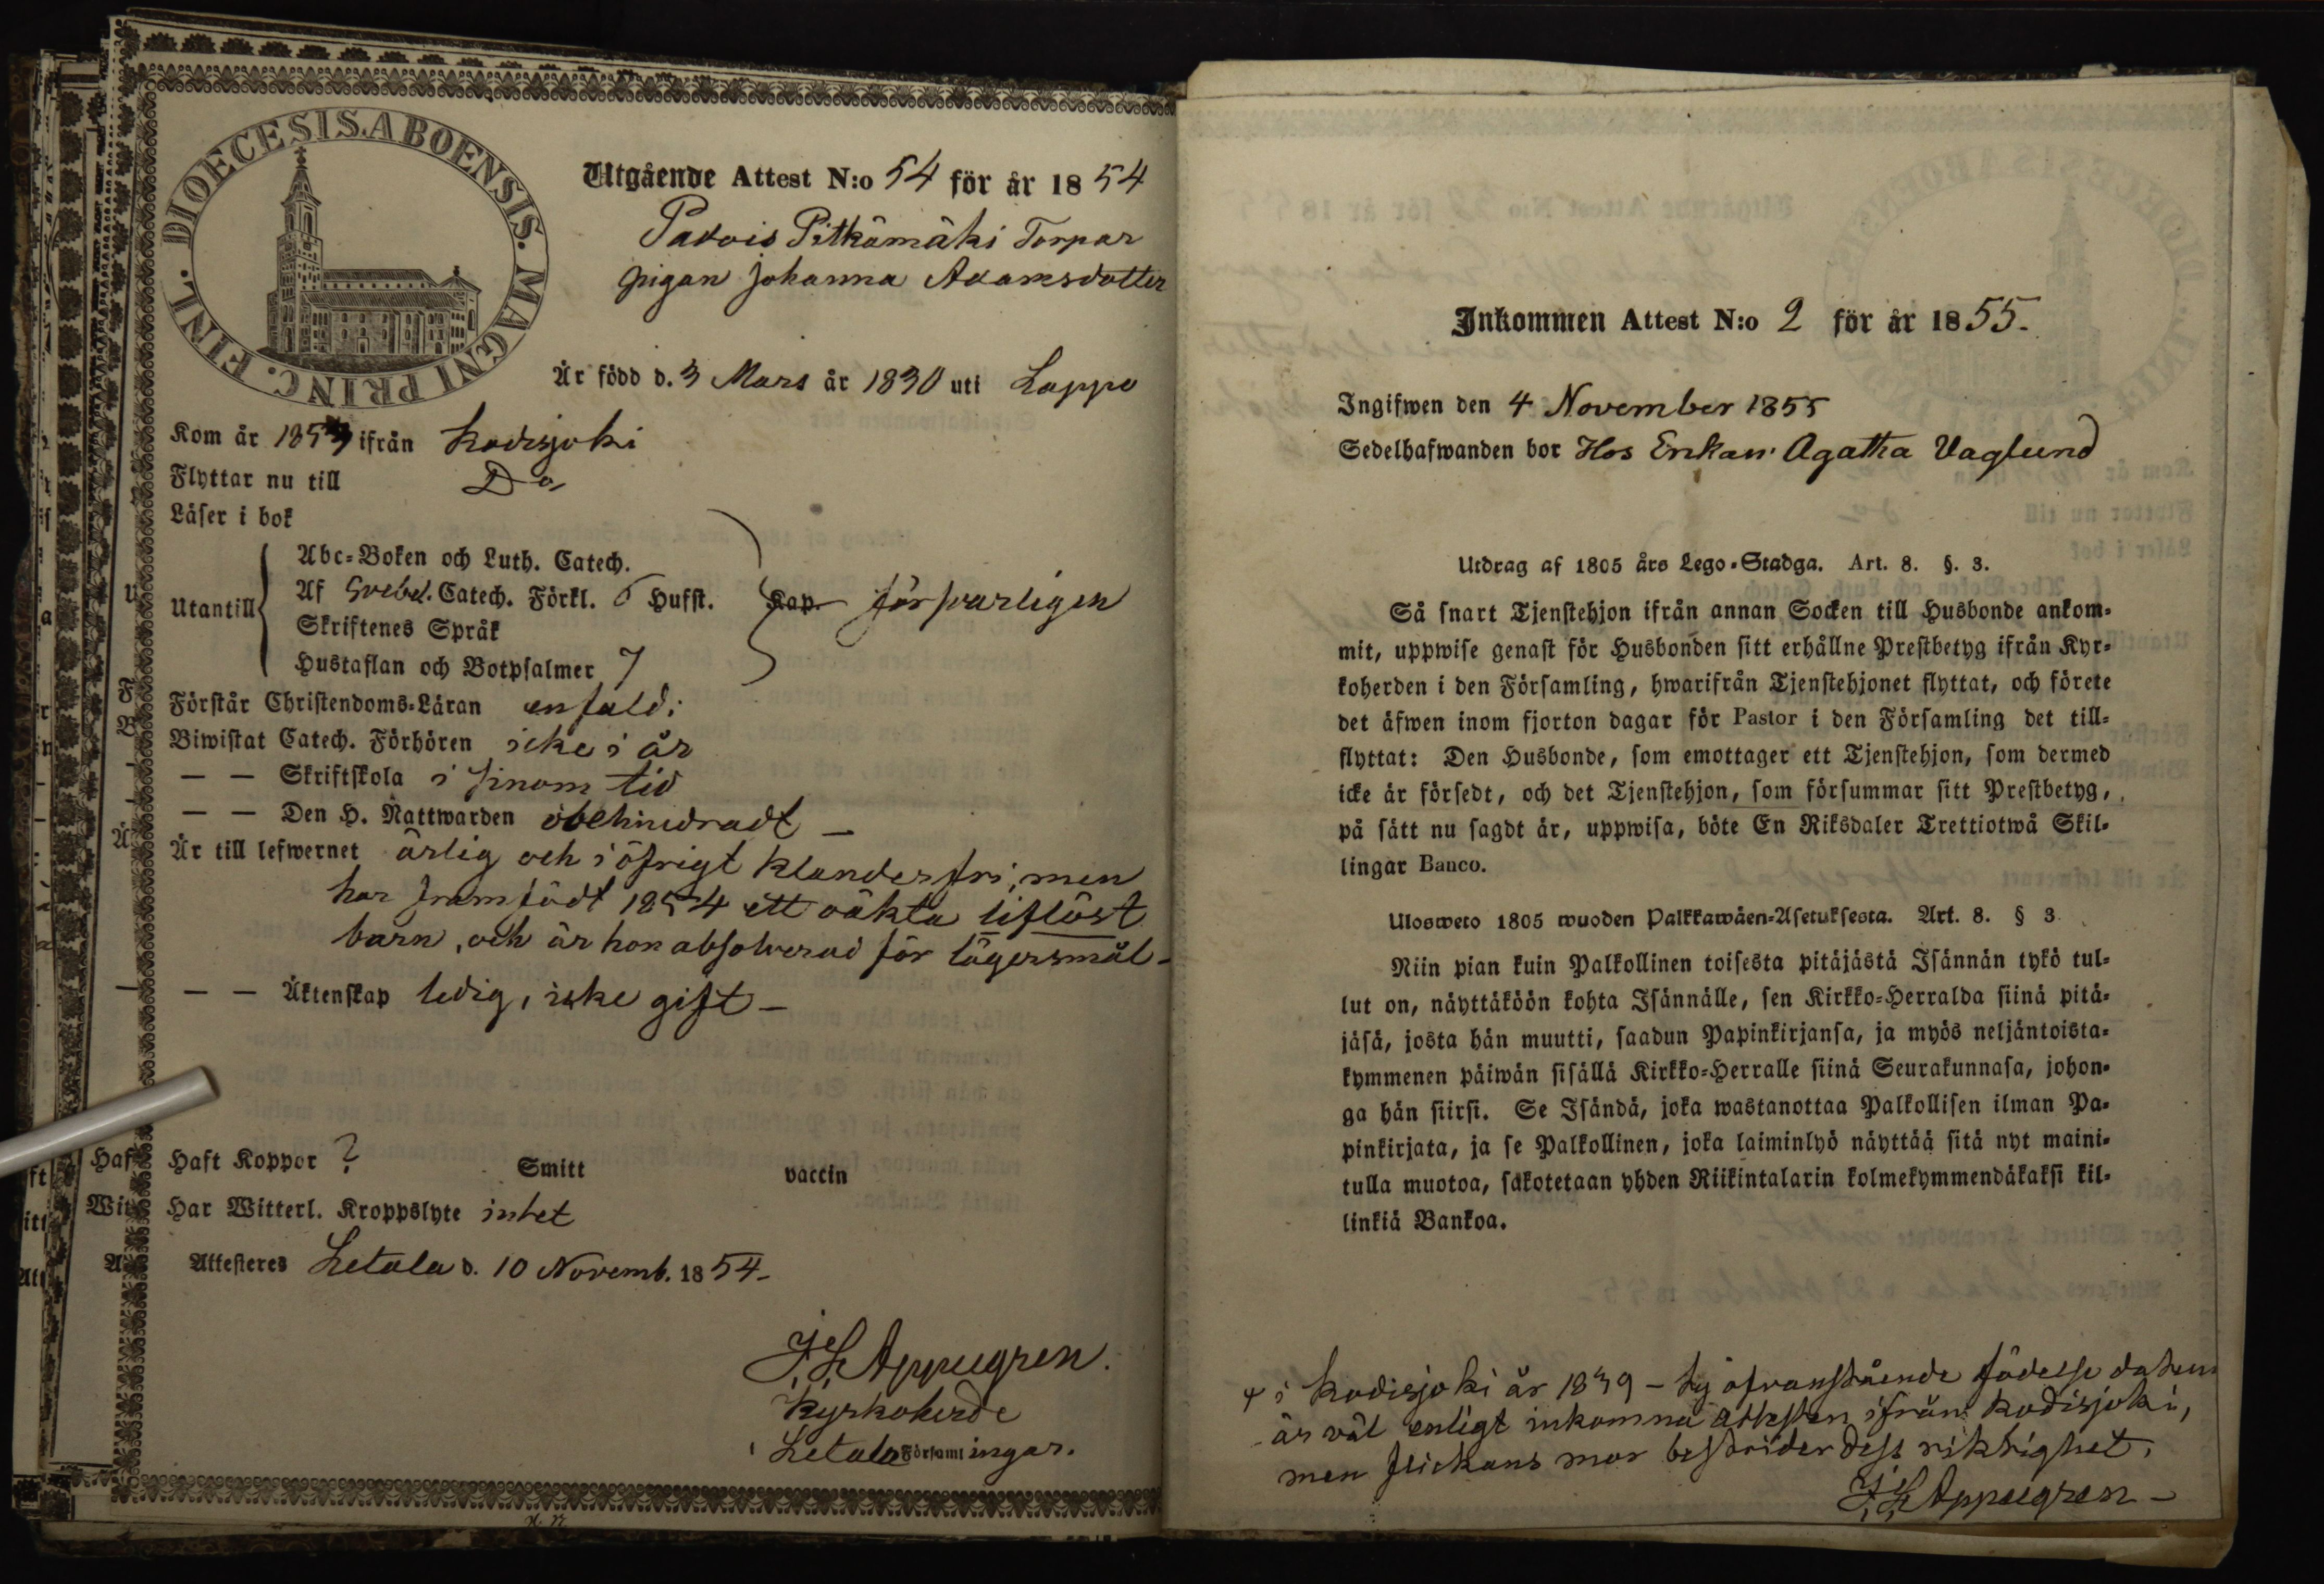 DIOECESIS. ABOENSIS. MAGNI PRINC. FINL.
Utgående Attest N:o 54 för år 1854
Padois Pitkämäki Torpar
pigan Johanna Adamsdotter
Är född d. 3 Mars år 1830 uti Lappo
Kom år 1853 ifrån Kodisjoki
Flyttar nu till Do
Läser i bok
Utantill
Abc-Boken och Luth. Catech.
Af Svebel. Catech. Förkl. 6 Hufst.
Skriftenes Språk
Hustaflan och Botpsalmer 7
Kap. försvarligen
Förstår Christendoms-Läran enfald:
Biwistat Catech. Förhören icke i år
— — Skriftskola i sinom tid
— — Den H. Nattwarden obehindradt —
Är till lefwernet ärlig och i öfrigt klanderfri, men
har framfödt 1854 ett oäkta liflöst
barn, och är hon absolverad för lägersmål –
— — Äktenskap ledig, icke gift –
Haft Koppor ? Smitt vaccin
Har Witterl. Kroppslyte intet
Attesteres Letala d. 10 Novemb. 1854.
Appelgren.
Kyrkoherde
Letala Församlingar.
Inkommen Attest N:o 2 för år 1855.
Ingifwen den 4 November 1855
Sedelhafwanden bor Hos Enkan Agatha Vaglund
Utdrag af 1805 års Lego-Stadga. Art. 8. §. 3.
Så snart Tjenstehjon ifrån annan Socken till Husbonde ankom-
mit, uppwise genast för Husbonden sitt erhållne Prestbetyg ifrån Kyr-
koherden i den Församling, hwarifrån Tjenstehjonet flyttat, och förete
det äfwen inom fjorton dagar för Pastor i den Församling det till-
flyttat: Den Husbonde, som emottager ett Tjenstehjon, som dermed
icke är försedt, och det Tjenstehjon, som försummar sitt Prestbetyg,
på sätt nu sagdt är, uppwisa, böte En Riksdaler Trettiotwå Skil-
lingar Banco.
Ulosweto 1805 wuoden Palkkawäen-Asetuksesta. Art. 8. § 3
Niin pian kuin Palkollinen toisesta pitäjästä Isännän tykö tul-
lut on, näyttäköön kohta Isännälle, sen Kirkko-Herralda siinä pitä-
jäsä, josta hän muutti, saadun Papinkirjansa, ja myös neljäntoista-
kymmenen päiwän sisällä Kirkko-Herralle siinä Seurakunnasa, johon-
ga hän siirsi. Se Isändä, joka wastanottaa Palkollisen ilman Pa-
pinkirjata, ja se Palkollinen, joka laiminlyö näyttää sitä nyt maini-
tulla muotoa, sakotetaan yhden Riikintalarin kolmekymmendäkaksi kil-
linkiä Bankoa.
i Kodisjoki år 1839 – ty ofvanstående födelse datum
är väl enligt inkomna attesten ifrån Kodisjoki,
men flickans mor bestrider dess riktighet.
Appelgren –